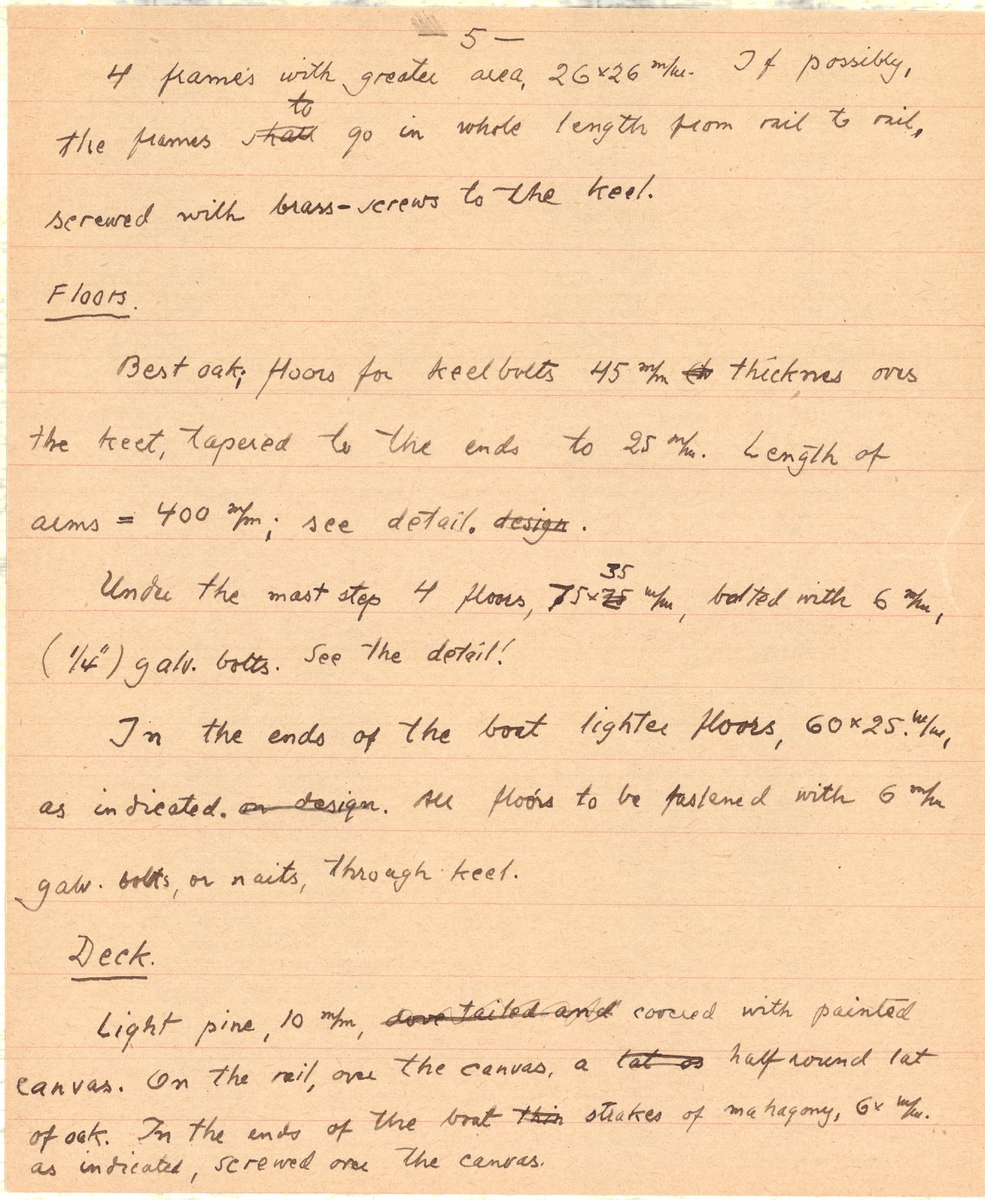 — 5 —
4 frames with greater area, 26×26 m/m. If possibly,
to
the frames shall go in whole length from rail to rail,
screwed with brass-screws to the keel.
Floors.
Best oak; floors for keelbolts 45 m/m thicknes over
the keel, tapered to the ends to 25 m/m. Length of
arms = 400 m/m; see detail. design.
35
Under the mast step 4 floors, 75×25 m/m, bolted with 6 m/m,
(1/4") galv. bolts. See the detail!
In the ends of the boat lighter floors, 60×25 m/m,
as indicated. on design. All floors to be fastened with 6 m/m
galv. bolts, or nails, through keel.
Deck.
Light pine, 10 m/m, dove tailed and covered with painted
canvas. On the rail, over the canvas, a lat os half round lat
of oak. In the ends of the boat thin strakes of mahagony, 6× m/m.
as indicated, screwed over the canvas.